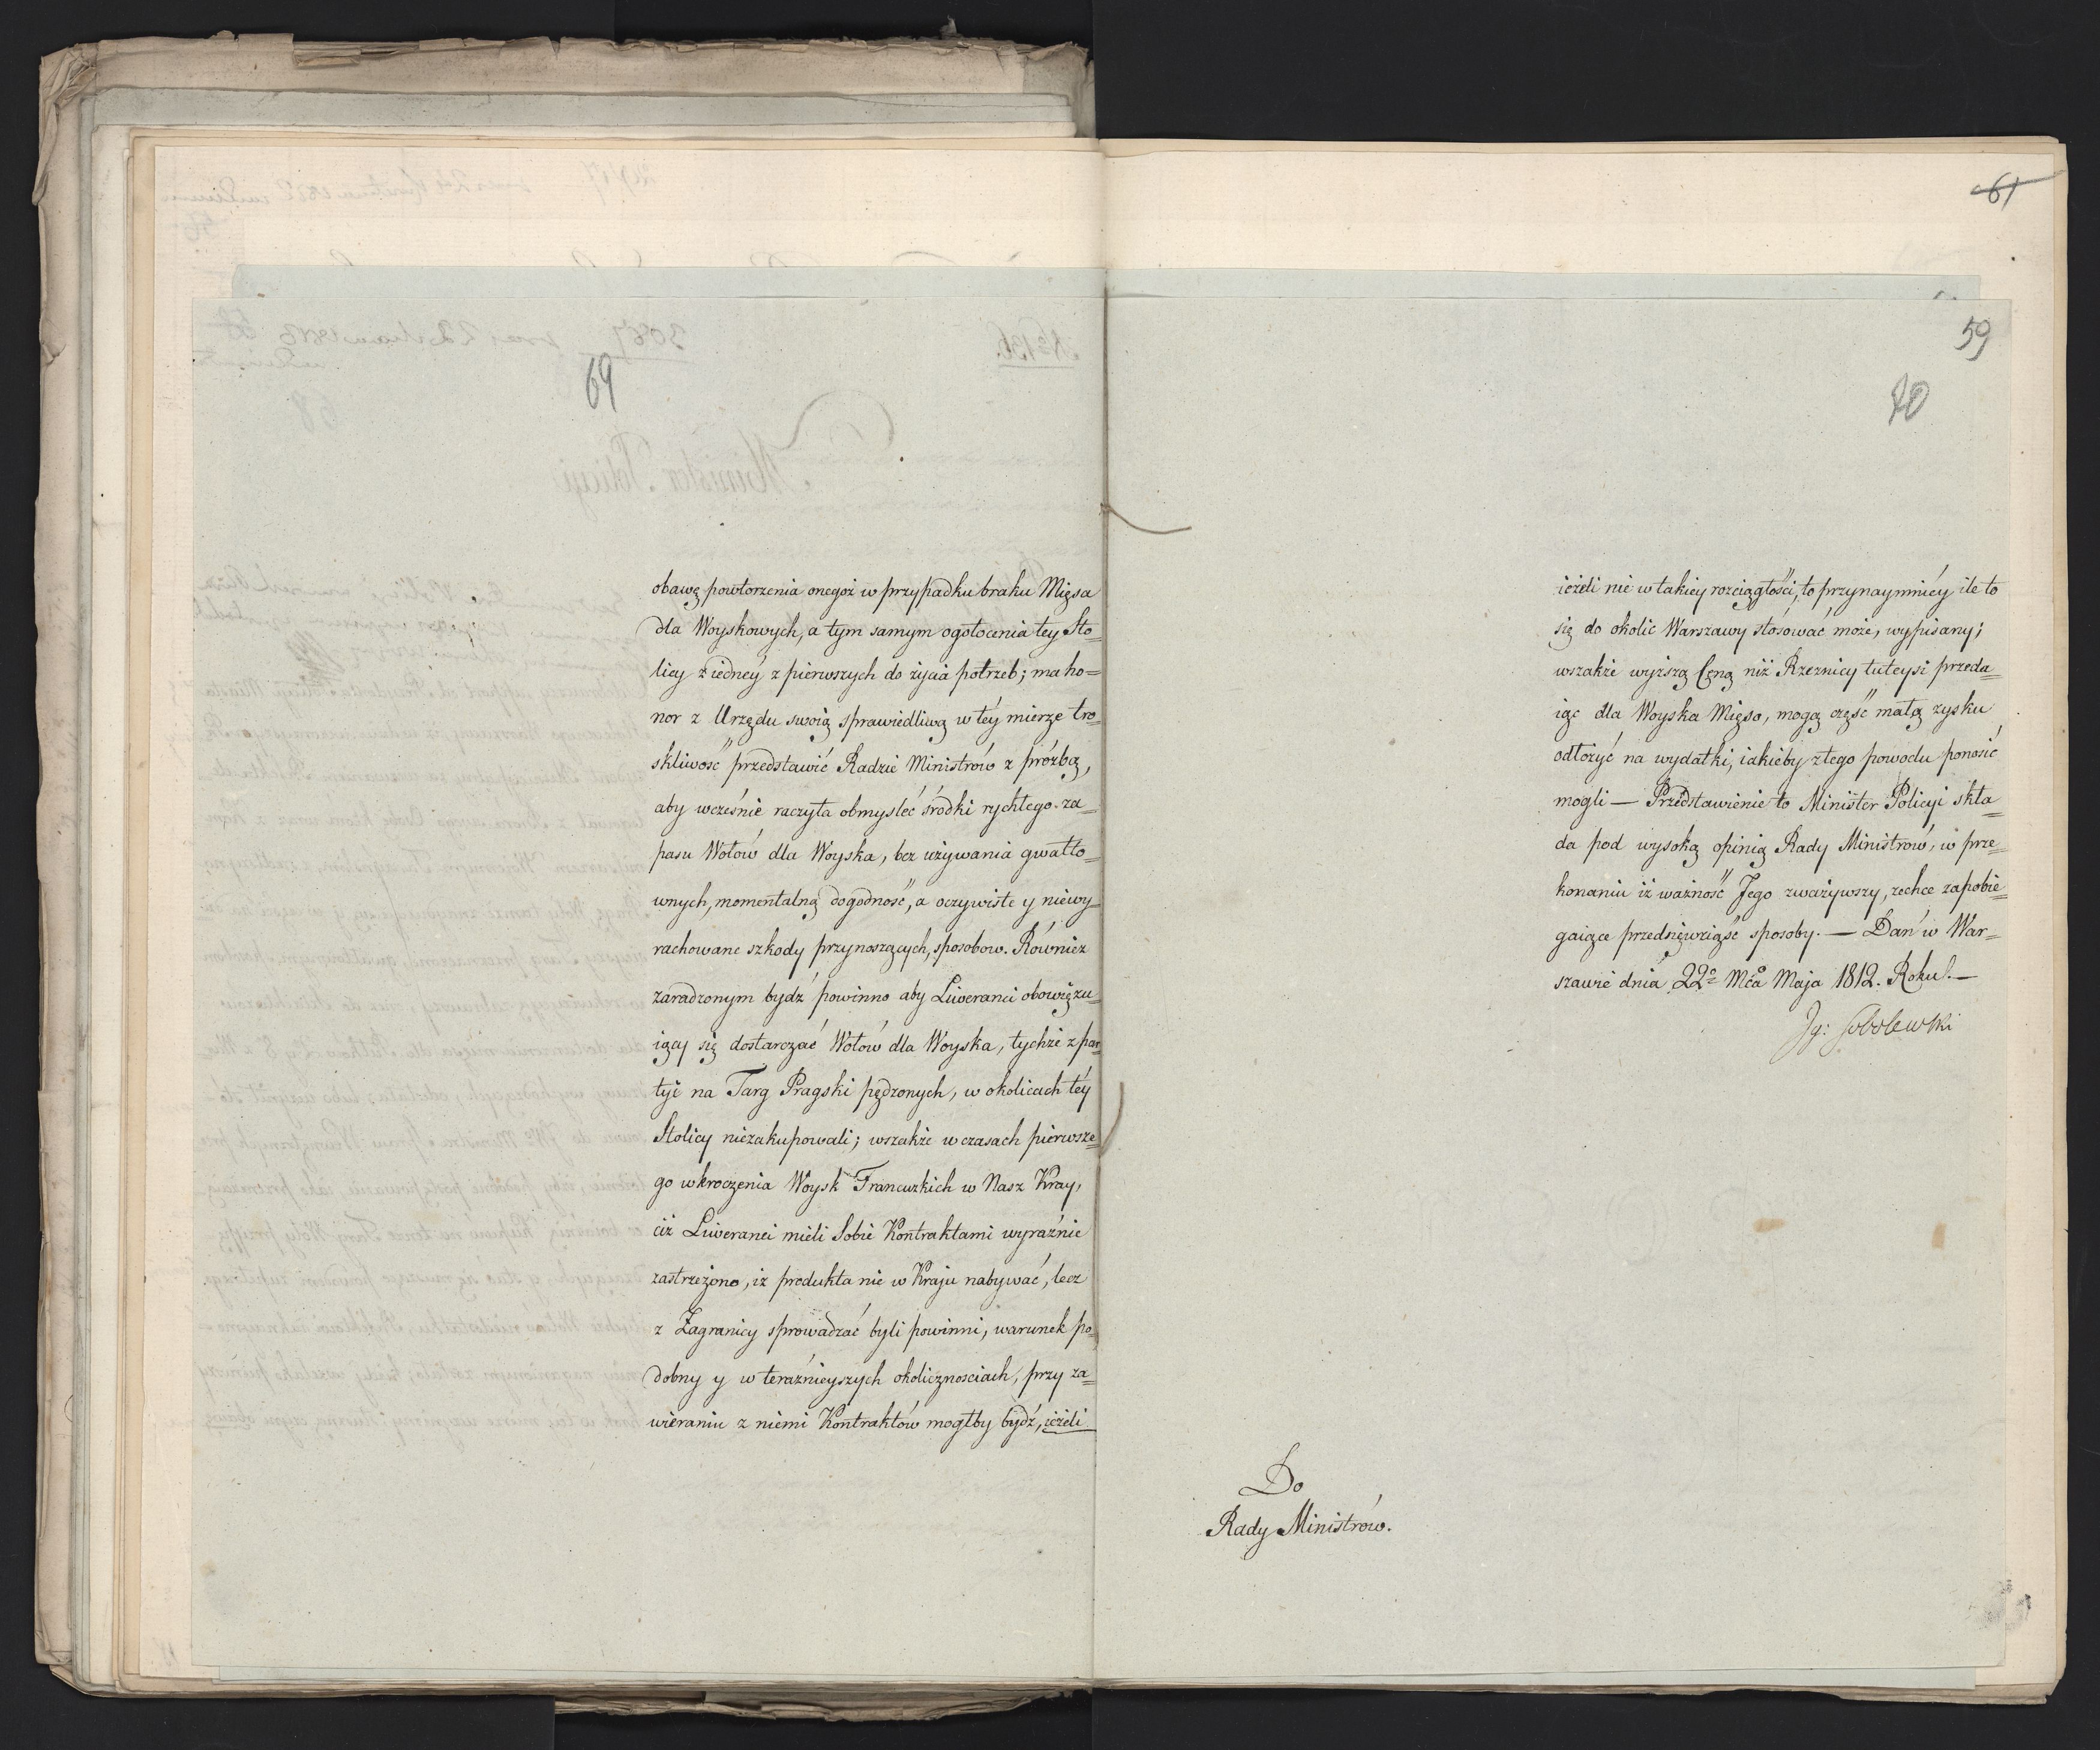 69
obawę powtorzenia onegoż w przypadku braku Mięsa
dla Woyskowych, a tym samym ogołocenia tey Sto=
licy z iedney z pierwszych do życia potrzeb; ma ho=
nor z Urzędu swoią sprawiedliwą w téy mierze tro=
skliwość przedstawić Radzie Ministrów z prózbą,
aby wcześnie raczyła obmysleć środki rychłego za=
pasu Wołów dla Woyska, bez używania gwałto=
wnych, momentalną dogodność, a oczywiste y niewy=
rachowane szkody przynoszących, sposobow. Również
zaradzonym bydź powinno aby Liweranci obowięzu=
iący się dostarczać Wołów dla Woyska, tychże z par=
tyi na Targ Pragski pędzonych, w okolicach téy
Stolicy niezakupowali; wszakże w czasach pierwsze=
go wkroczenia Woysk Francuzkich w Nasz Kray,
ciż Liweranci mieli Sobie Kontraktami wyraźnie
zastrzeżono, iż produkta nie w Kraju nabywać, lecz
z Zagranicy sprowadzać byli powinni, warunek po=
dobny y w teraźnieyszych okolicznosciach, przy za=
wieraniu z niemi Kontraktów mogłby bydź, ieżeli
61
59
70
ieżeli nie w takiey rozciągłości, to przynaymniéy ile to
się do okolic Warszawy stósować może, wypisany;
wszakże wyższą Ceną niż Rzeznicy tuteysi przeda=
iąc dla Woyska Mięso, mogą część małą zysku
odłożyć na wydatki, iakieby z tego powodu ponosić
mogli — Przedstawienie to Minister Policyi skła=
da pod wysoką opinią Rady Ministrów, w prze=
konaniu iż ważność Jego zważywszy, zechce zapobie=
gaiące przedsięwziąść sposoby. — Dań w War=
szawie dnia 22º Mca Maja 1812. Roku. —
Ig: Sobolewski
Do
Rady Ministrów.